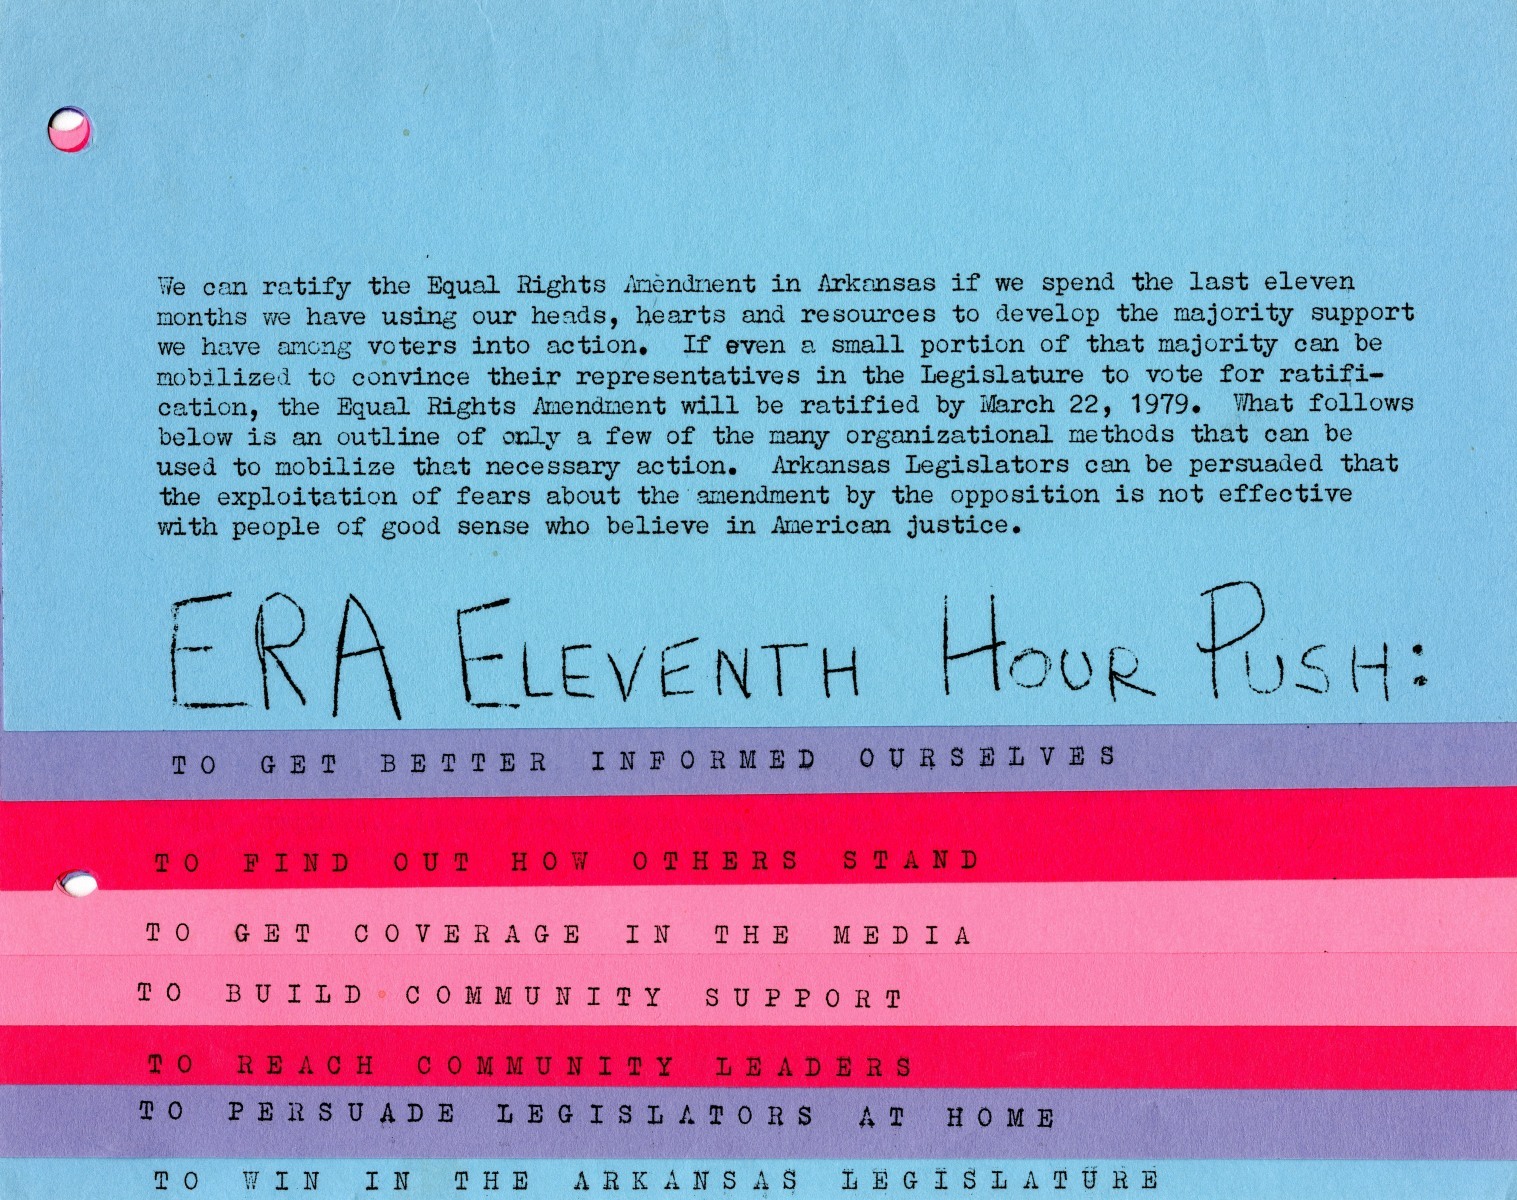 We can ratify the Equal Rights Amendment in Arkansas if we spend the last eleven
months we have using our heads, hearts and resources to develop the majority support
we have among voters into action.  If even a small portion of that majority can be
mobilized to convince their representatives in the Legislature to vote for ratifi-
cation, the Equal Rights Amendment will be ratified by March 22, 1979.  What follows
below is an outline of only a few of the many organizational methods that can be
used to mobilize that necessary action.  Arkansas Legislators can be persuaded that
the exploitation of fears about the amendment by the opposition is not effective
with people of good sense who believe in American justice.
ERA ELEVENTH HOUR PUSH:
TO GET BETTER INFORMED OURSELVES
TO FIND OUT HOW OTHERS STAND
TO GET COVERAGE IN THE MEDIA
TO BUILD COMMUNITY SUPPORT
TO REACH COMMUNITY LEADERS
TO PERSUADE LEGISLATORS AT HOME
TO WIN IN THE ARKANSAS LEGISLATURE